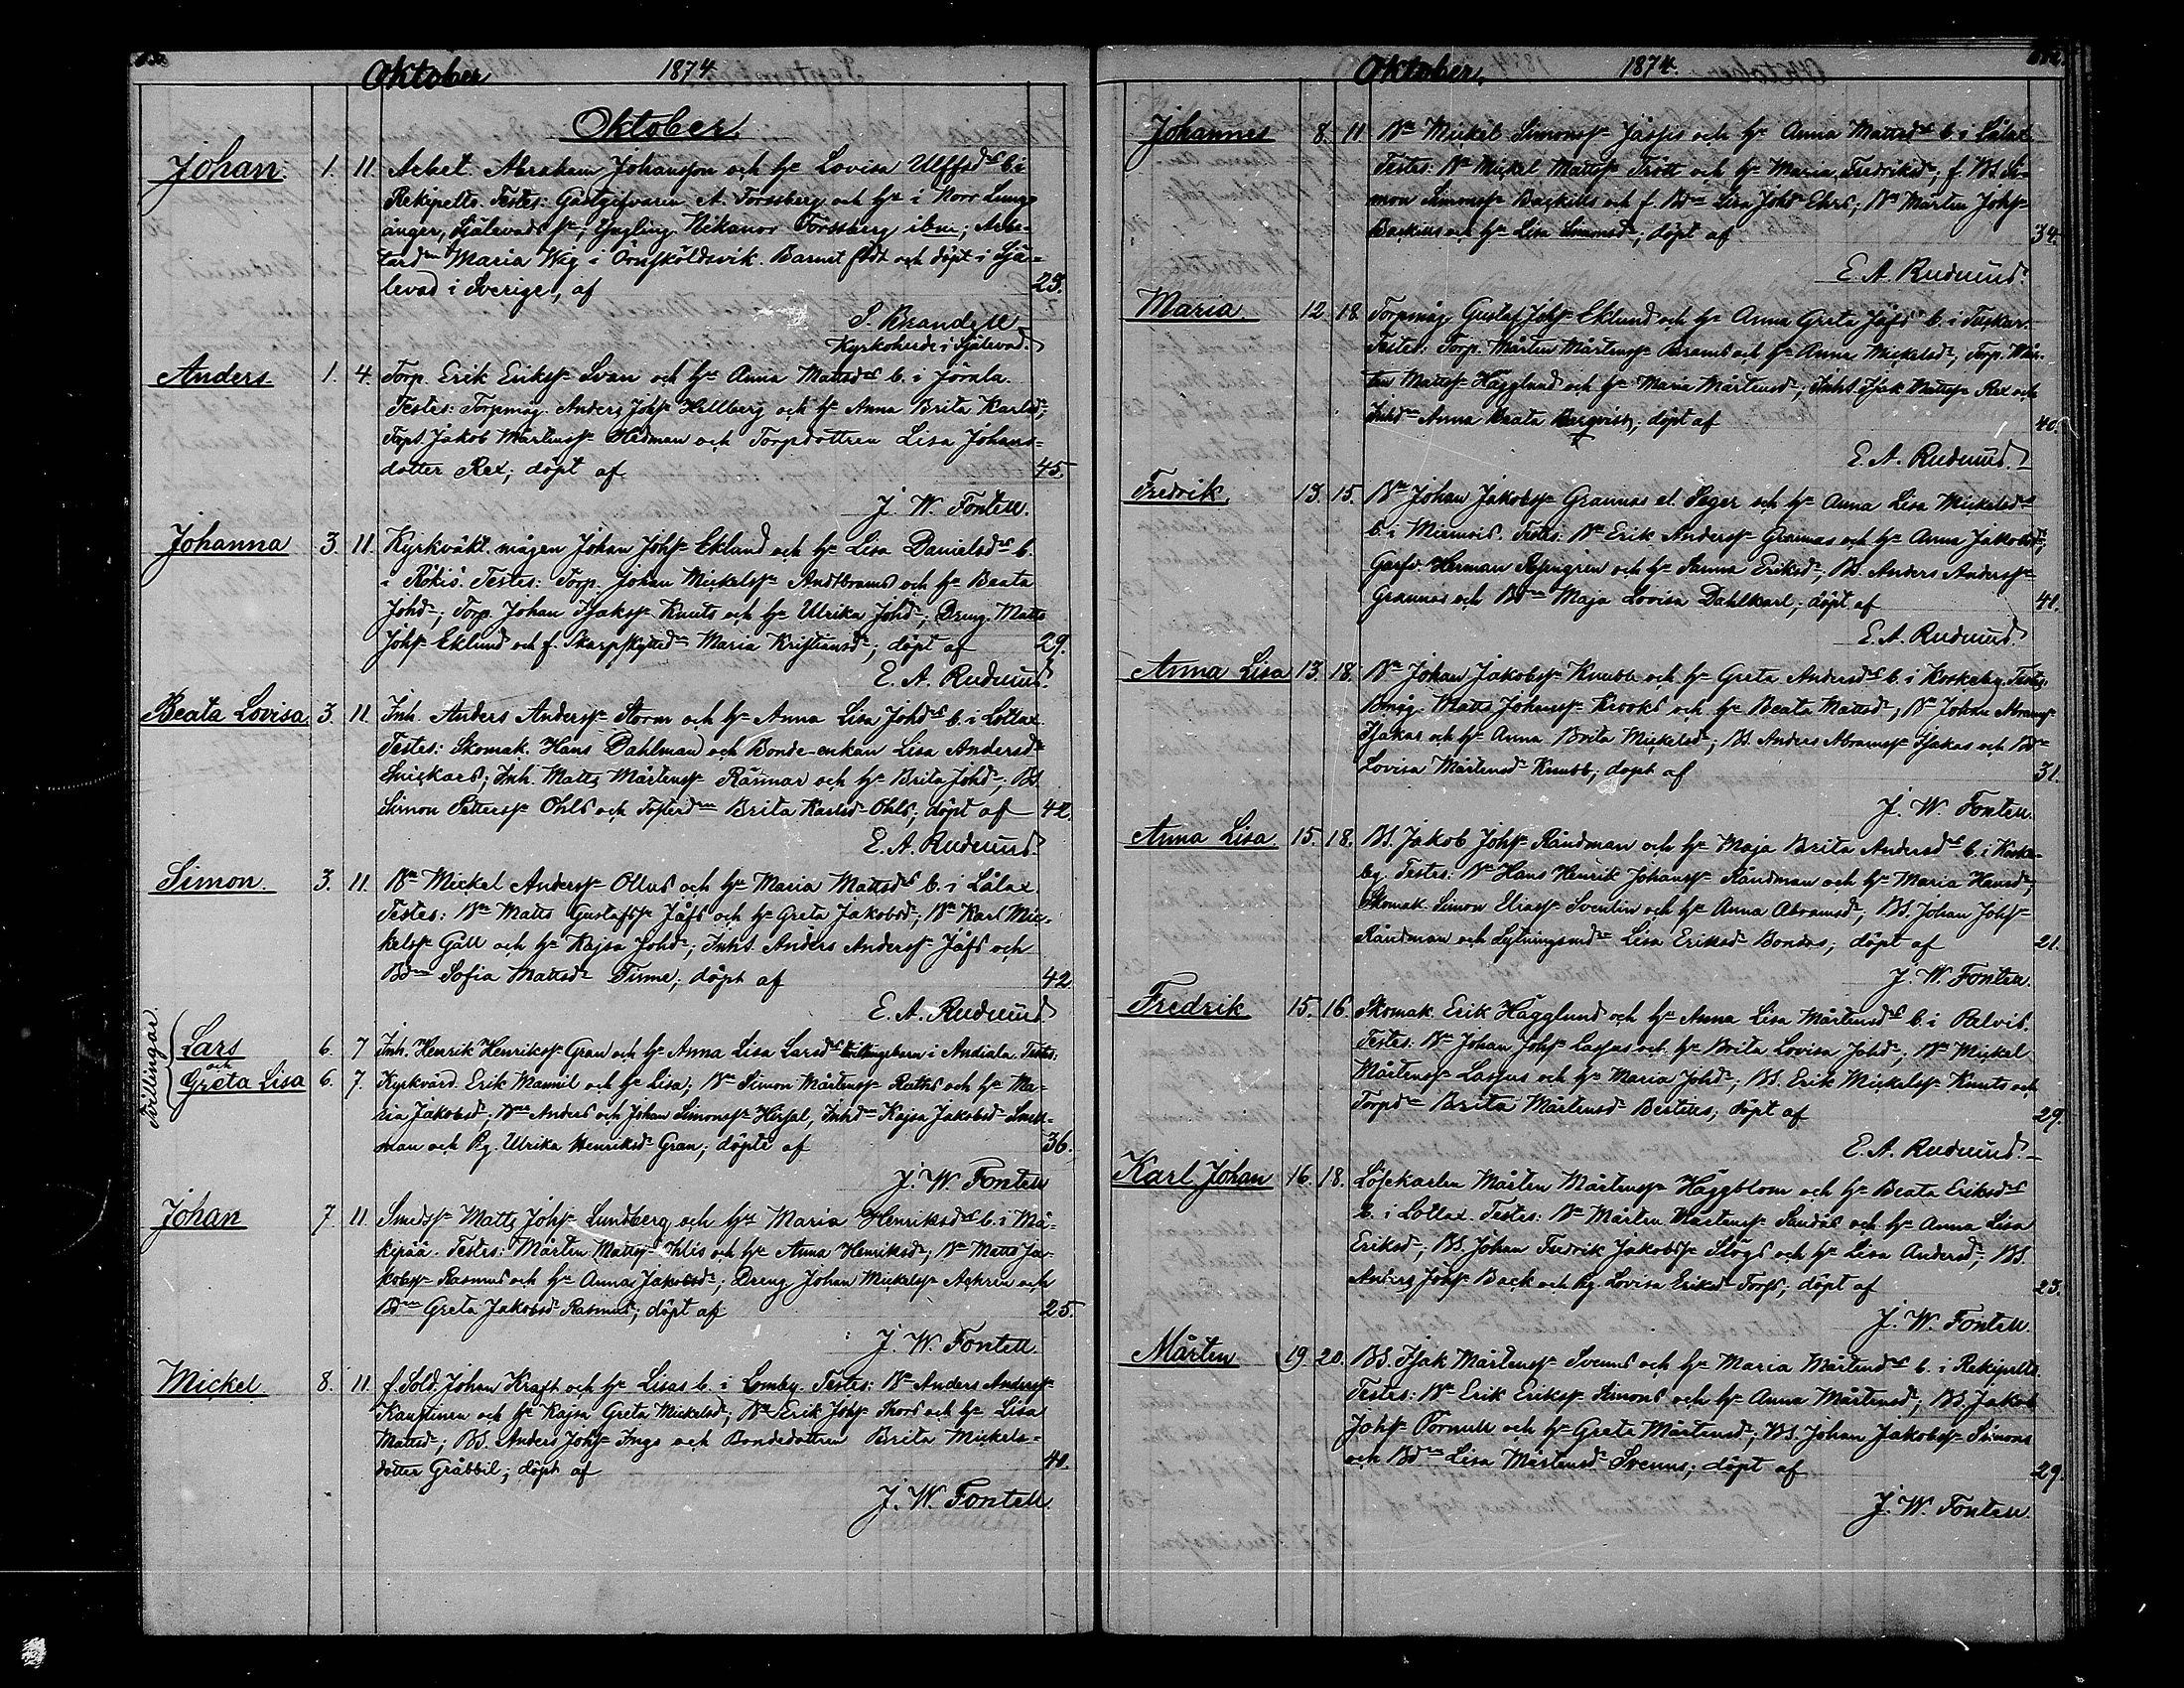 Oktober 1874
Oktober.
Johan. 1. 11. Arbet. Abraham Johansson och Hu Lovisa Ulffsdr b. i
Rekipelto. Testes: Gästgifvaren A. Forssberg och Hu i Norr Lungånger,
Själevads sn; Yngling Nikanor Forssberg ibm; Arbetard:n
Maria Wig i Örnsköldsvik. Barnet födt och döpt i Själevad
i Sverige, af 23.
S. Brandell
Kyrkoherde i Själevad.
Anders. 1. 4. Torp. Erik Erikss. Svan och Hu Anna Mattsdr b. i Jörala.
Testes: Torpmåg. Anders Johss. Hellberg och Hu Anna Brita Karlsdr;
Torps. Jakob Mårtenss. Hedman och Torpdottren Lisa Johansdotter
Rex; döpt af 45.
J. W. Fontell.
Johanna 3. 11. Kyrkväkt. mågen Johan Johss. Eklund och Hu Lisa Danielsdr b.
i Rökiö. Testes: Torp. Johan Mickelss. Andtbrams och Hu Beata
Johdr; Torp. Johan Isakss. Knuts och Hu Ulrika Johdr; Dreng. Matts
Johss. Eklund och f. Skarpskytted:n Maria Kristiansdr; döpt af 29.
E. A. Rudnäs.
Beata Lovisa 3. 11. Inh. Anders Anderss. Storm och Hu Anna Lisa Johdr b. i Lotlax.
Testes: Skomak. Hans Dahlman och Bonde-enkan Lisa Andersdr
Snickars; Inh. Matts Mårtenss. Rännar och Hu Brita Johdr; BS.
Simon Petterss. Ohls och Fosterd:n Brita Karlsdr Ohls; döpt af 42.
E. A. Rudnäs.
Simon. 3. 11. Bn Mickel Anderss. Ollus och Hu Maria Mattsdr b. i Lålax.
Testes: Bn Matts Gustafss. Jåfs och Hu Greta Jakobsdr; Bn Karl Mickelss.
Gall och Hu Kajsa Johdr; Inhs. Anders Anderss. Jåfs och
Bd:n Sofia Mattsdr Finne; döpt af 42
E. A. Rudnäs
Tvillingar.
Lars 6. 7 Inh. Henrik Henrikss. Gran och Hu Anna Lisa Larsdr tvillingbarn i Andiala. Testes:
och
Greta Lisa 6. 7. Kyrkvärd. Erik Mannil och Hu Lisa; Bn Simon Mårtenss. Raths och Hu Maria
Jakobsdr; Bne Anders och Johan Simonss. Hirsal, Inhd:n Kajsa Jakobsdr
och Pg. Ulrika Henriksdr Gran; döpte af 36.
J. W. Fontell
Johan 7 11. Smedss. Matts Johss. Lundberg och Hu Maria Henriksdr b. i Mäkipää.
Testes: Mårten Mattss. Ihlis och Hu Anna Henriksdr; Bn Matts Jakobss.
Rasmus och Hu Anna Jakobsdr; Dreng Johan Mickelss. Achren och
Bd:n Greta Jakobsdr Rasmus; döpt af 25.
J. W. Fontell
Mickel 8. 11. f. Sold. Johan Kraft och Hu Lisas b. i Lomby. Testes: Bn Anders Anderss.
Kaustinen och Hu Kajsa Greta Mickelsdr; Bn Erik Johss. Thors och Hu Lisa
Mattsdr; BS. Anders Johss. Ings och Bondedottren Brita Mickelsdotter
Gråbbil; döpt af 40.
J. W. Fontell
Oktober. 1874.
Johannes 8. 11. Bn Mickel Simonss. Jåssis och Hu Anna Mattsdr b. i Lålax
Testes: Bn Mickel Mattss. Trött och Hu Maria Fredriksdr; f. BS. Simon
Simonss. Backills och f. Bd:n Lisa Johdr Ehrs; Bn Mårten Johss.
Backills och Hu Lisa Simonsdr; döpt af 34.
E. A. Rudnäs.
Maria. 12. 18. Torpmåg. Gustaf Johss. Eklund och Hu Anna Greta Jåfsdr b. i Tuskar.
Testes: Torp. Mårten Mårtenss. Brams och Hu Anna Mickelsdr; Torp. Mårten
Mattss. Hägglund och Hu Maria Mårtensdr; Inhs. Isak Mattss. Rex och
Inhd:n Anna Beata Bergqvist; döpt af 40.
E. A. Rudnäs.
Fredrik. 13. 15. Bn Johan Jakobss. Grannas el. Seger och Hu Anna Lisa Mickelsdr
b. i Miemois. Testes: Bn Erik Anderss. Grannas och Hu Anna Jakobsdr;
Garfv. Herman Rosengren och Hu Sanna Eriksdr; BS. Anders Anderss.
Grannas och Bd:n Maja Lovisa Dahlkarl; döpt af 41.
E. A. Rudnäs
Anna Lisa 13. 18. Bn Johan Jakobss. Knubb och Hu Greta Andersdr b. i Koskeby. Testes:
Bmåg. Matts Johanss. Krooks och Hu Beata Mattsdr; Bn Johan Abramss.
Isakas och Hu Anna Brita Mickelsdr; BS. Anders Abramss. Isakas och Bd:n
Lovisa Mårtensdr Knubb; döpt af 31.
J. W. Fontell
Anna Lisa 15. 18. BS. Jakob Johss. Råndman och Hu Maja Brita Andersdr b. i Koskeby.
Testes: Bn Hans Henrik Johanss. Råndman och Hu Maria Hansdr;
Skomak. Simon Eliass. Sventin och Hu Anna Abramsdr; BS. Johan Johss.
Råndman och Lytningsmdr Lisa Eriksdr Bondas; döpt af 21.
J. W. Fontell.
Fredrik 15. 16. Skomak. Erik Hägglund och Hu Anna Lisa Mårtensdr b. i Palvis.
Testes. Bn Johan Johss. Lassus och Hu Brita Lovisa Johdr; Bn Mickel
Mårtenss. Lassus och Hu Maria Johdr; BS. Erik Mickelss. Knuts och
Torpd:n Brita Mårtensdr Bestites; döpt af 29.
E. A. Rudnäs
Karl Johan 16. 18. Löskarlen Mårten Mårtenss. Häggblom och Hu Beata Eriksdr
b. i Lotlax. Testes: Bn Mårten Mårtenss. Sandås och Hu Anna Lisa
Eriksdr; BS. Johan Fredrik Jakobss. Slögs och Hu Lisa Andersdr; BS.
Anders Johss. Back och Pg. Lovisa Eriksdr Torfs; döpt af 23.
J. W. Fontell.
Mårten 19. 20. BS. Isak Mårtenss. Svenns och Hu Maria Mårtensdr b. i Rekipelto.
Testes: Bn Erik Erikss. Simons och Hu Anna Mårtensdr; BS. Jakob
Johss. Pornull och Hu Greta Mårtensdr; BS. Johan Jakobss. Simons
och Bd:n Lisa Mårtensdr Svenns; döpt af 29.
J. W. Fontell.